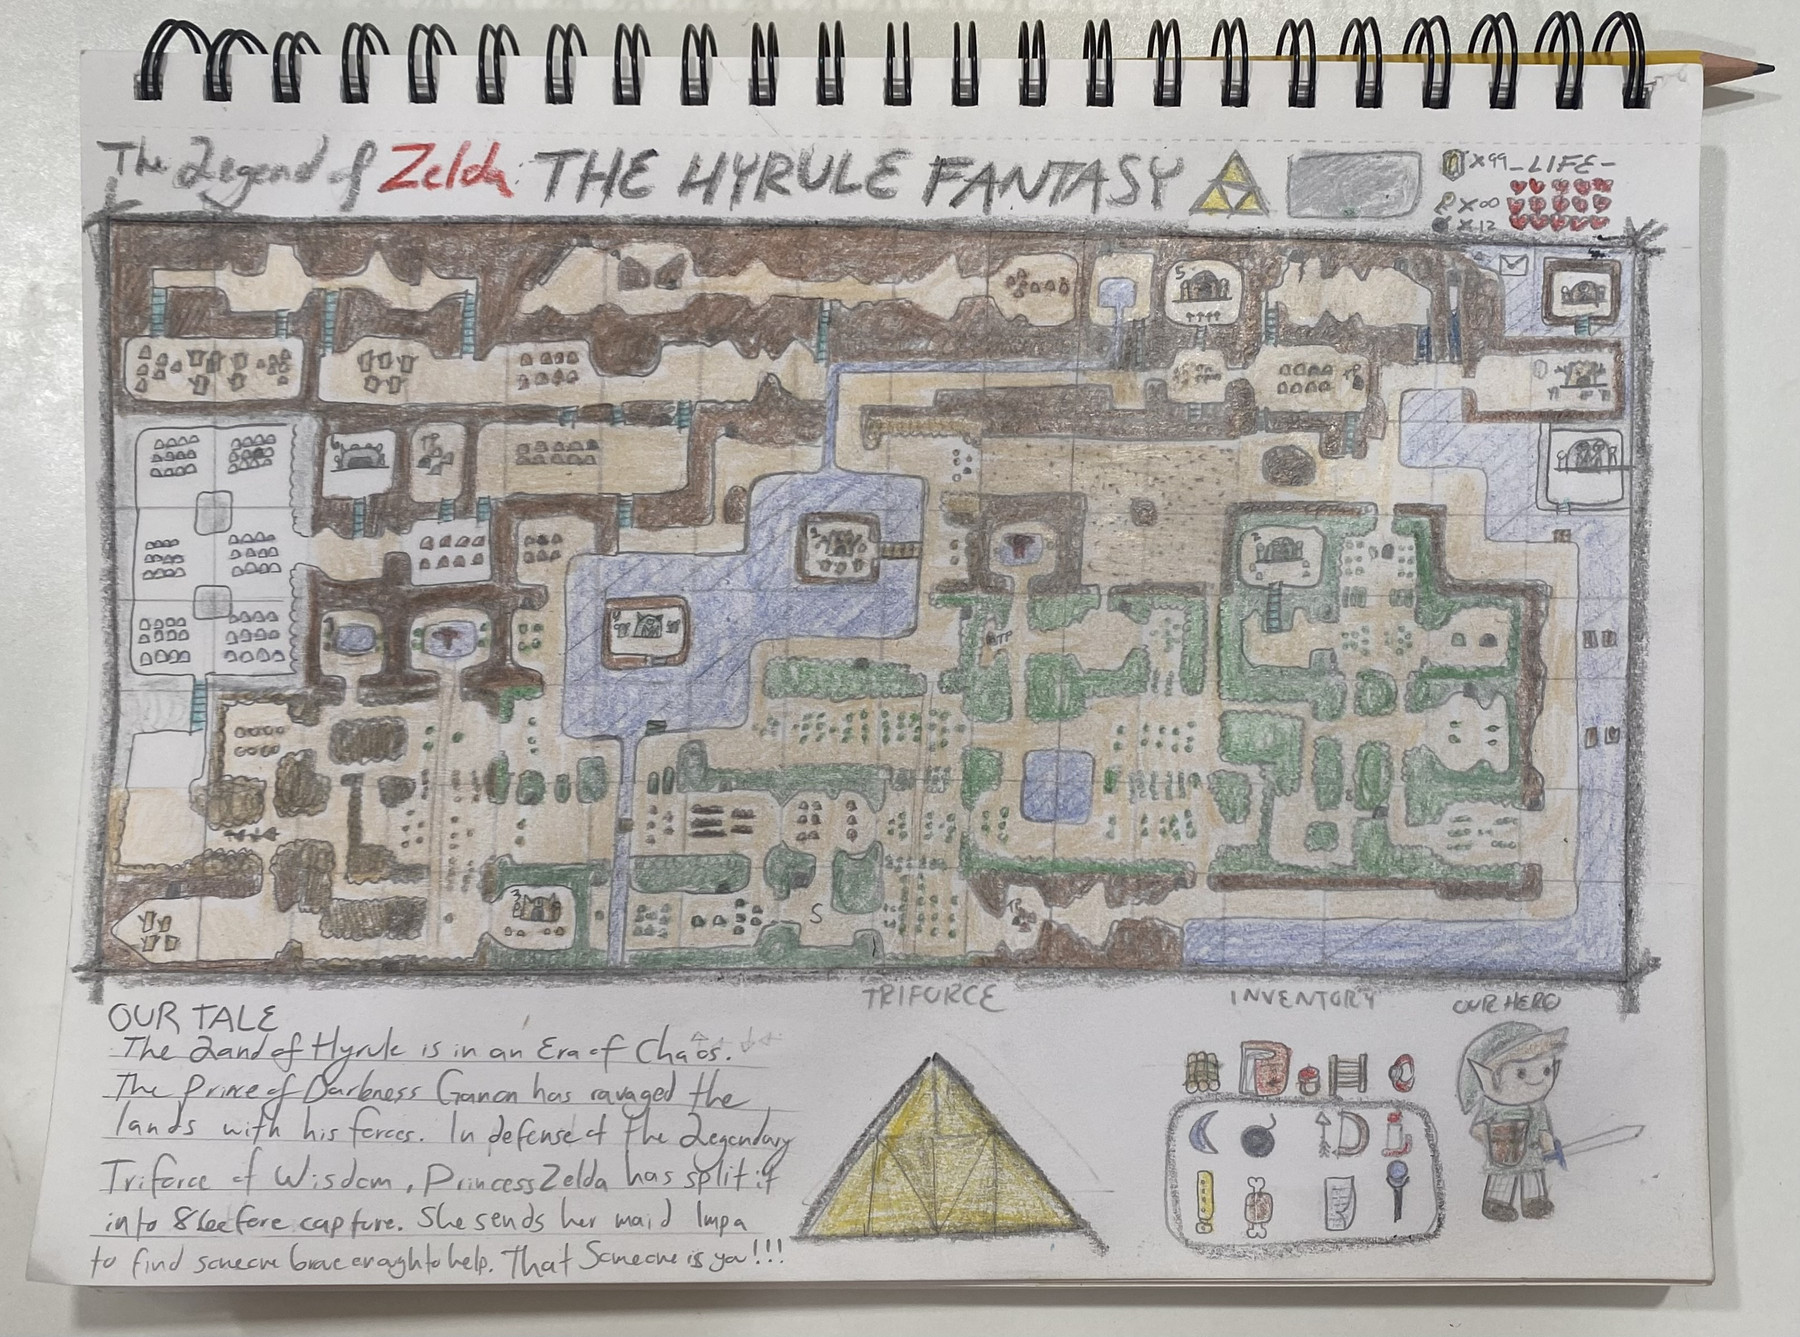 The Legend of Zelda: THE HYRULE FANTASY
X99 -LIFE-
X00
X12
5
6
TP
2
TP
3
S
TP
TRIFORCE
INVENTORY
OUR HERO
OUR TALE
The Land of Hyrule is in an Era of Chaos.
The Prince of Darkness Ganon has ravaged the
lands with his forces. In defense of the Legendary
Triforce of Wisdom, Princess Zelda has split it
into 8 before capture. She sends her maid Impa
to find someone brave enough to help. That Someone is you!!!